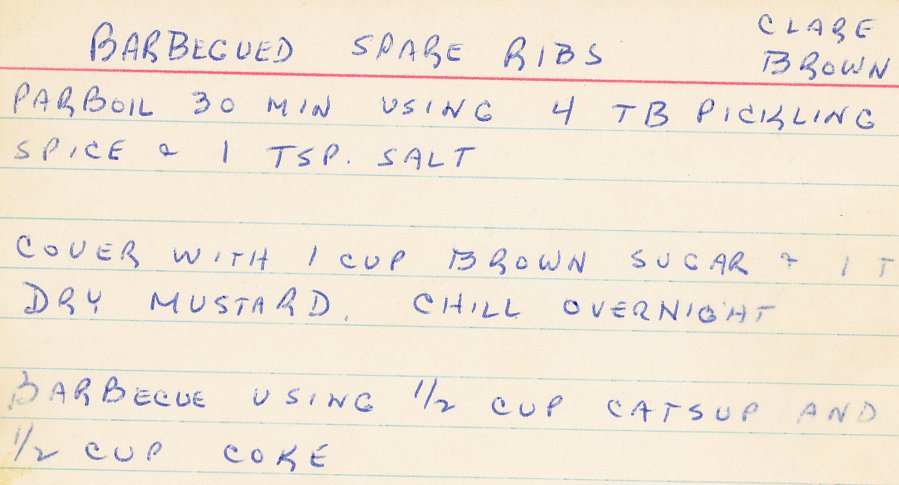 BARBECUED SPARE RIBS
CLARE
BROWN
PARBOIL 30 MIN USING 4 TB PICKLING
SPICE & 1 TSP. SALT
COVER WITH 1 CUP BROWN SUGAR & 1 T
DRY MUSTARD. CHILL OVERNIGHT
BARBECUE USING 1/2 CUP CATSUP AND
1/2 CUP COKE